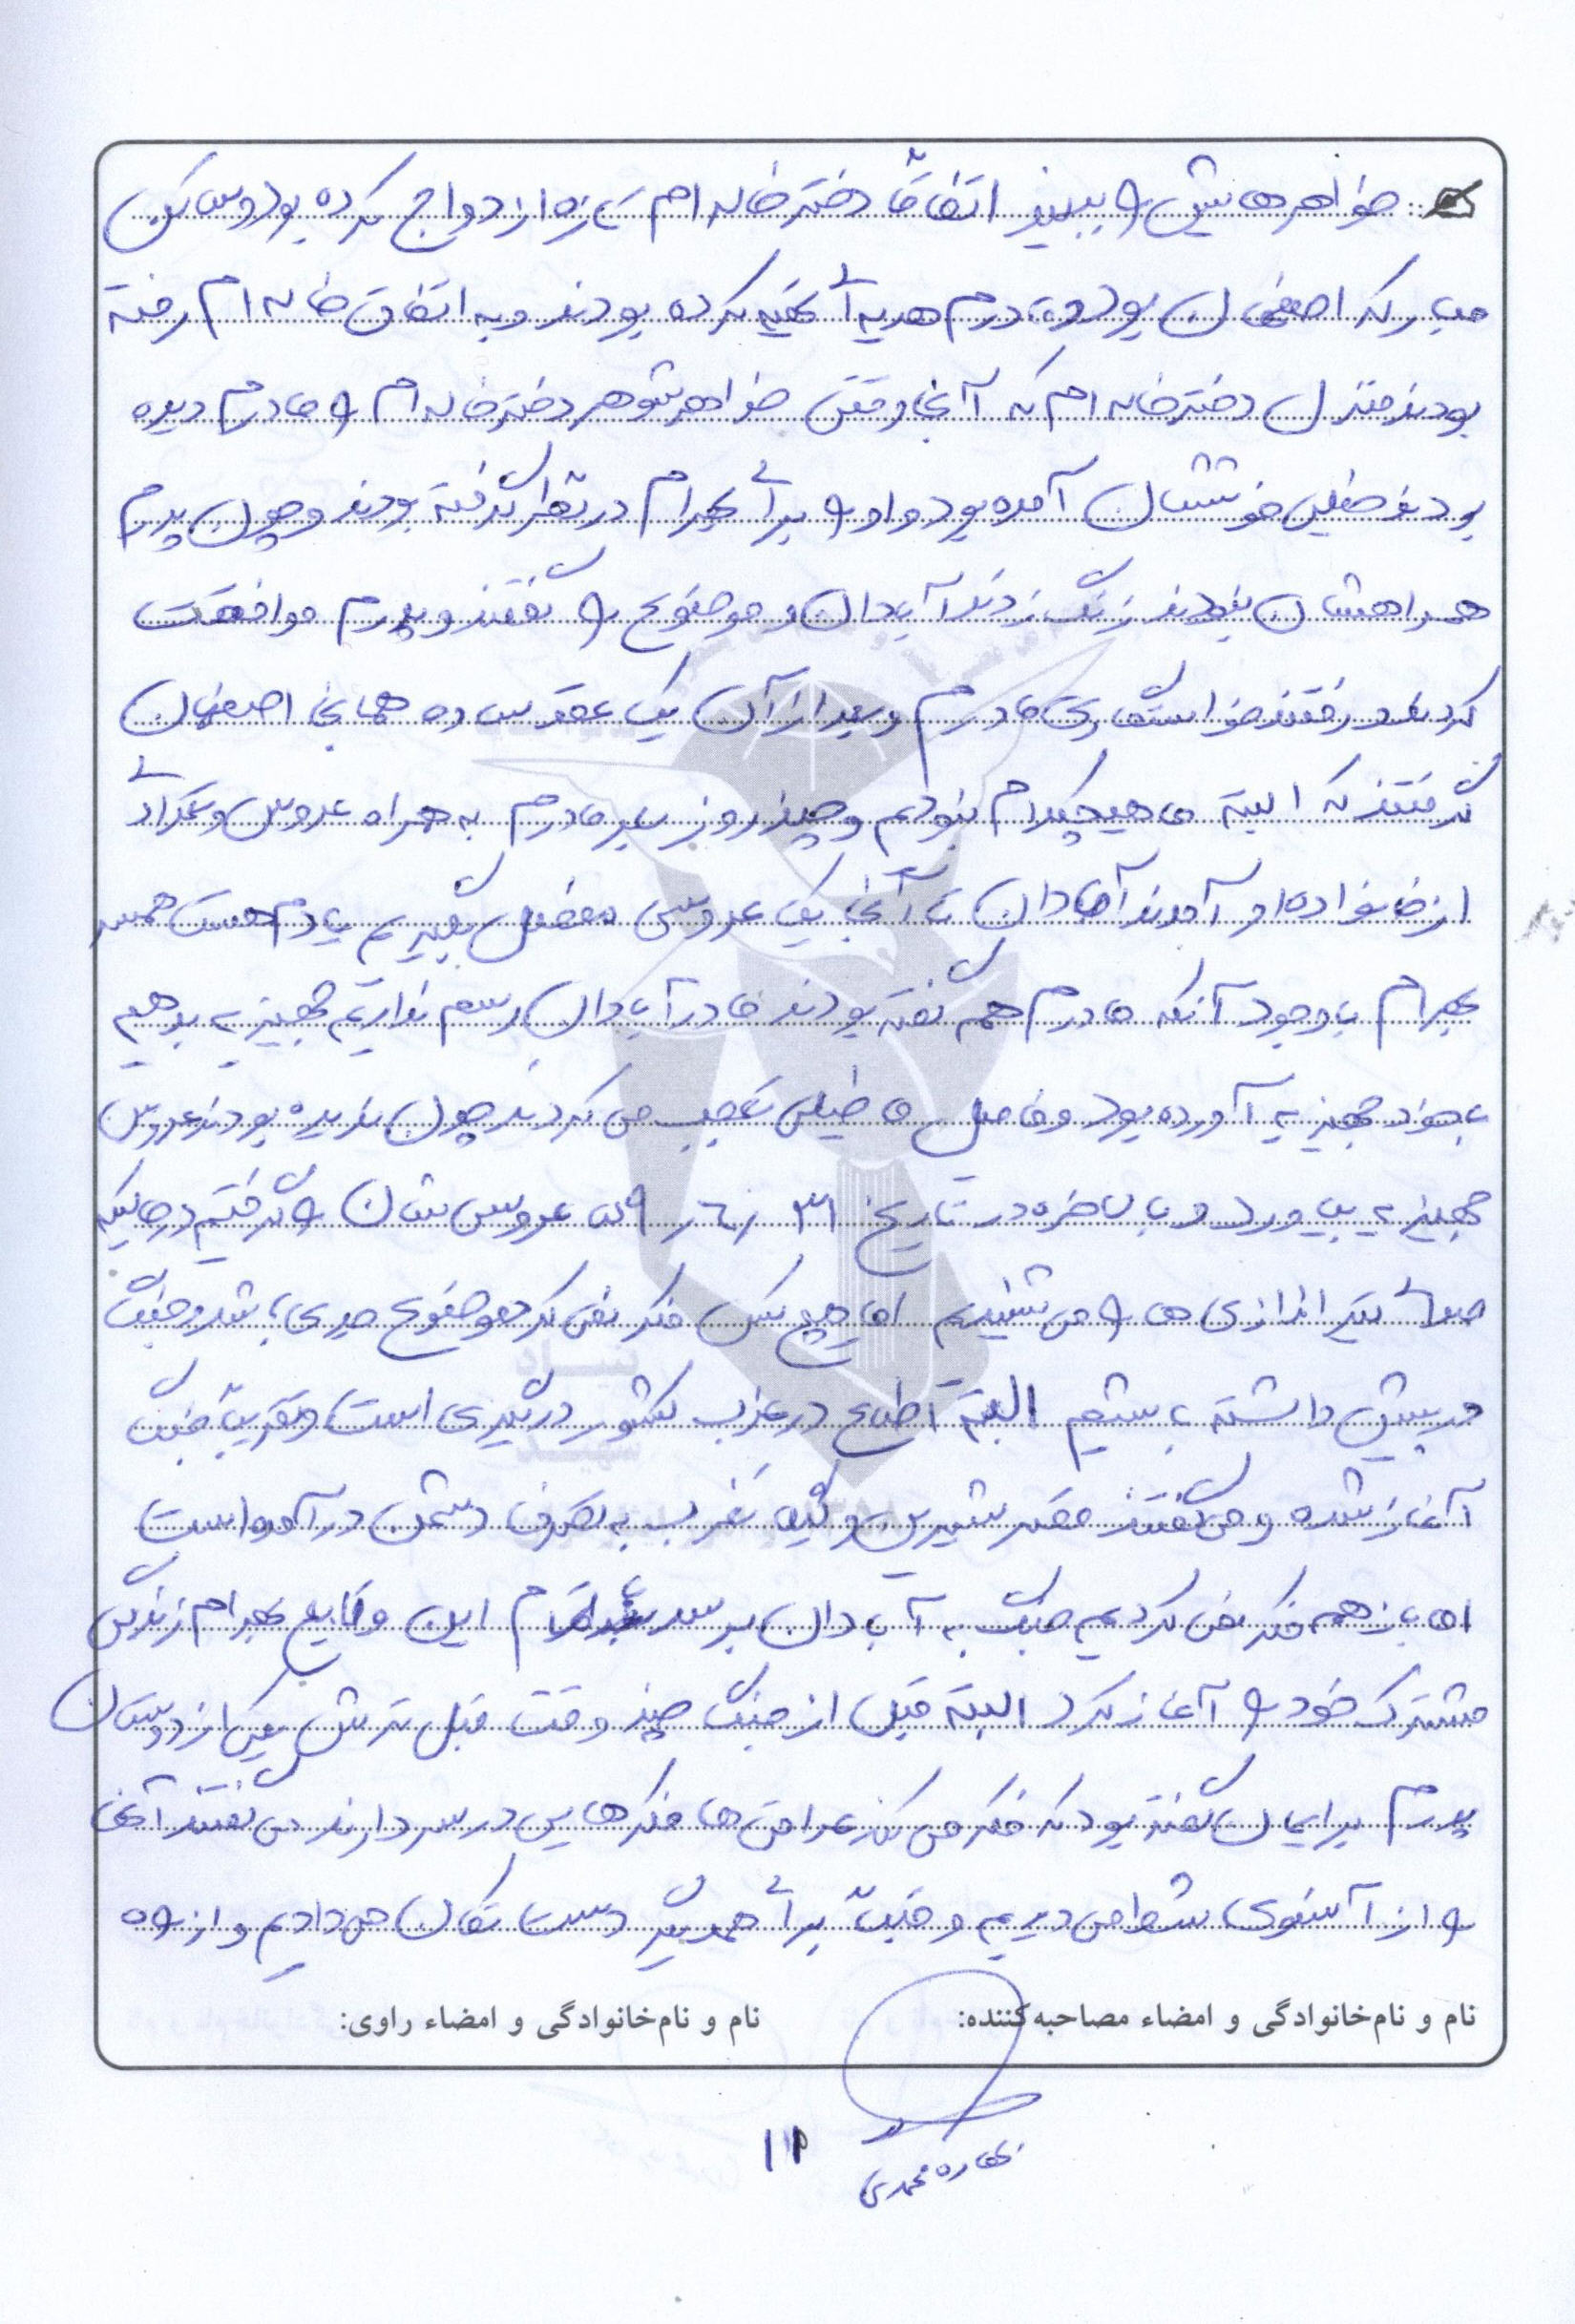 خواهرهایش را ببیند اتفاقاً دخترخاله ام تازه ازدواج کرده بود و ساکن
مبارکه اصفهان بود و مادرم هدیه ای تهیه کرده بودند و به اتفاق خاله ام رفته
بودند منزل دخترخاله ام که آنجا وقتی خواهرشوهر دخترخاله ام را مادرم دیده
بودند خیلی خوششان آمده بود و او را برای بهرام در نظر گرفته بودند و چون پدرم
همراهشان نبودند زنگ زدند آبادان و موضوع را گفتند و پدرم موافقت
کردند و رفتند خواستگاری مادرم و بعد از آن یک عقد ساده همانجا اصفهان
گرفتند که البته ما هیچکدام نبودیم و چند روز بعد مادرم به همراه عروس و تعدادی
از خانواده او آمدند آبادان تا آنجا یک عروسی مفصل بگیریم یادم هست همسر
بهرام با وجود آنکه مادرم هم گفته بودند ما در آبادان رسم نداریم جهیزیه بدهیم
با خود جهیزیه آورده بود و فامیل ما خیلی تعجب می کردند چون ندیده بودند عروس
جهیزیه بیاورد و بالاخره در تاریخ ۳۱ ر ۶ ر ۵۹ عروسی شان را گرفتیم در حالیکه
صدای تیراندازی ها را می شنیدیم اما هیچ کس فکر نمی کرد موضوع جدی باشد و جنگ
در پیش داشته باشیم البته آن اطلاع در غرب کشور درگیری است و تقریباً جنگ
آغاز شده و می گفتند قصر شیرین و گیلانغرب به تصرف دشمن درآمده است
اما باز هم فکر نمی کردیم جنگ به آبادان برسد بهرام این وقایع بهرام زندگی
مشترک خود را آغاز کرد البته قبل از جنگ چند وقت قبل ترش یکی از دوستان
پدرم برایمان گفته بود که فکر می کنم عراقی ها فکرهایی در سر دارند می گفتند آنها
را از آنسوی شط می دیدیم و قبلاً برای همدیگر دست تکان می دادیم و از راه
نام و نام‌خانوادگی و امضاء مصاحبه‌کننده:
نام و نام‌خانوادگی و امضاء راوی:
محمدی
۱۱